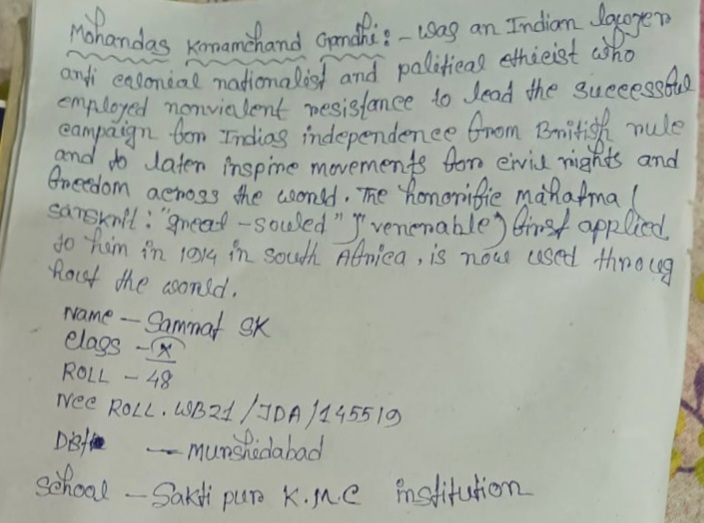 Mohandas Karamchand Gandhi :- was an Indian lawyer
anti colonial nationalist and political ethicist who
employed nonviolent resistance to lead the successful
campaign for Indias independence from British rule
and to later inspire movements for civil rights and
freedom across the world. The honorific mahatma (
sanskrit : "great - souled" "venerable) first applied
to him in 1914 in south Africa, is now used throug
hout the world.
Name - Sammat SK
Class - X
ROLL - 48
Ncc ROLL. WB21/JDA/145519
Dist - Murshidabad
School - Saktipur K.M.C institution